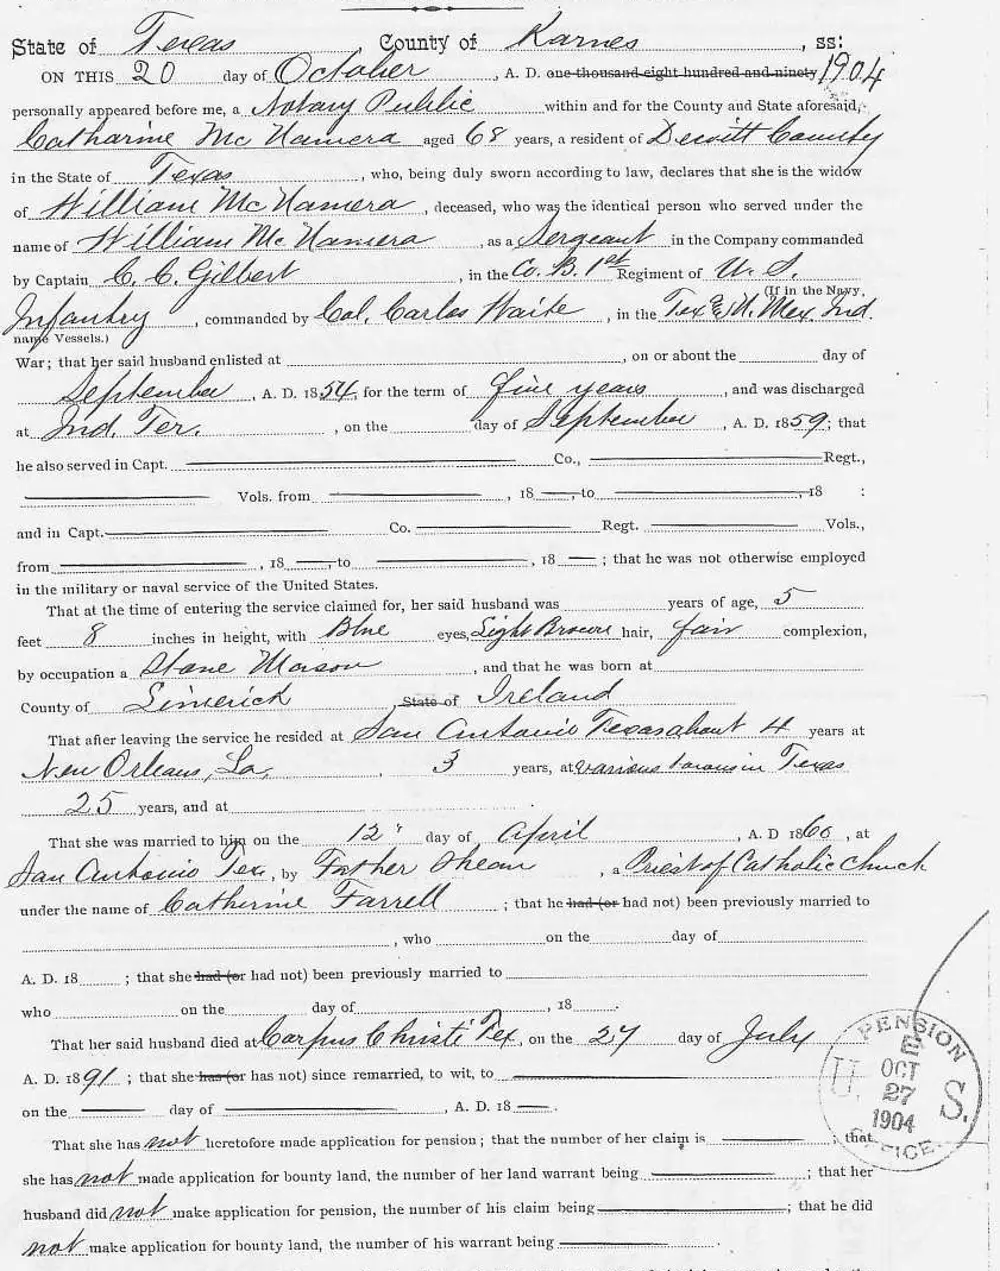 State of Texas, County of Karnes, ss:
ON THIS 20 day of October, A. D. one thousand eight hundred and ninety 1904
personally appeared before me, a Notary Public within and for the County and State aforesaid,
Catharine McNamera aged 68 years, a resident of Dewitt County
in the State of Texas, who, being duly sworn according to law, declares that she is the widow
of William McNamera, deceased, who was the identical person who served under the
name of William McNamera, as a Sergeant in the Company commanded
by Captain C. C. Gilbert, in the Co. B. 1st Regiment of U. S.
(If in the Navy,
Infantry, commanded by Col. Carlos Waite, in the Tex & N. Mex. Ind.
name Vessels.)
War; that her said husband enlisted at , on or about the day of
September, A. D. 1854, for the term of five years, and was discharged
at Ind. Ter. , on the day of September, A. D. 1859; that
he also served in Capt. Co., Regt.,
Vols. from , 18 , to , 18 :
and in Capt. Co. Regt. Vols.,
from , 18 , to , 18 ; that he was not otherwise employed
in the military or naval service of the United States.
That at the time of entering the service claimed for, her said husband was years of age, 5
feet 8 inches in height, with Blue eyes, Light Brown hair, fair complexion,
by occupation a Stone Mason, and that he was born at
County of Limerick, State of Ireland
That after leaving the service he resided at San Antonio Texas about 4 years at
New Orleans, La, 3 years, at various towns in Texas
25 years, and at
That she was married to him on the 12" day of April, A. D 1860, at
San Antonio Tex, by Father Shean, a Priest of Catholic Church
under the name of Catherine Farrell; that he had (or had not) been previously married to
, who on the day of
A. D. 18 ; that she had (or had not) been previously married to
who on the day of , 18 .
That her said husband died at Corpus Christi Tex, on the 27 day of July
A. D. 1891; that she has (or has not) since remarried, to wit, to
on the day of , A. D. 18 .
That she has not heretofore made application for pension; that the number of her claim is ; that
she has not made application for bounty land, the number of her land warrant being ; that her
husband did not make application for pension, the number of his claim being ; that he did
not make application for bounty land, the number of his warrant being .
U. S. PENSION OFFICE
OCT
27
1904